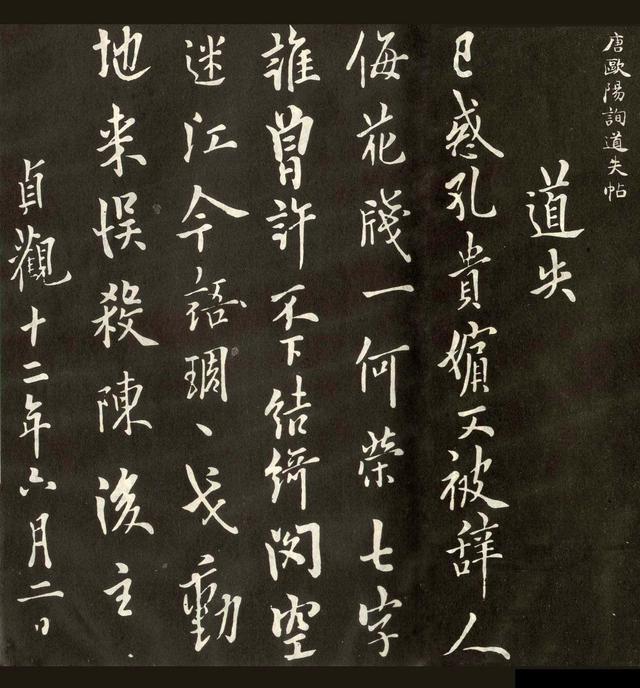 唐歐陽詢道失帖
道失
已惑孔貴嬪又被辞人
侮花牋一何榮七字
誰曾許不下結綺閣空
迷江令語琱、戈動
地来悮殺陳後主
貞觀十二年六月二日